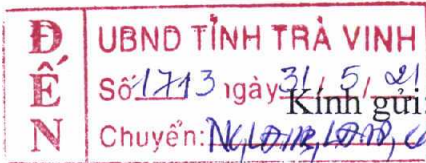 ĐẾN
UBND TỈNH TRÀ VINH
Số 1713 ngày 31/5/21
Kính gửi:
Chuyển: